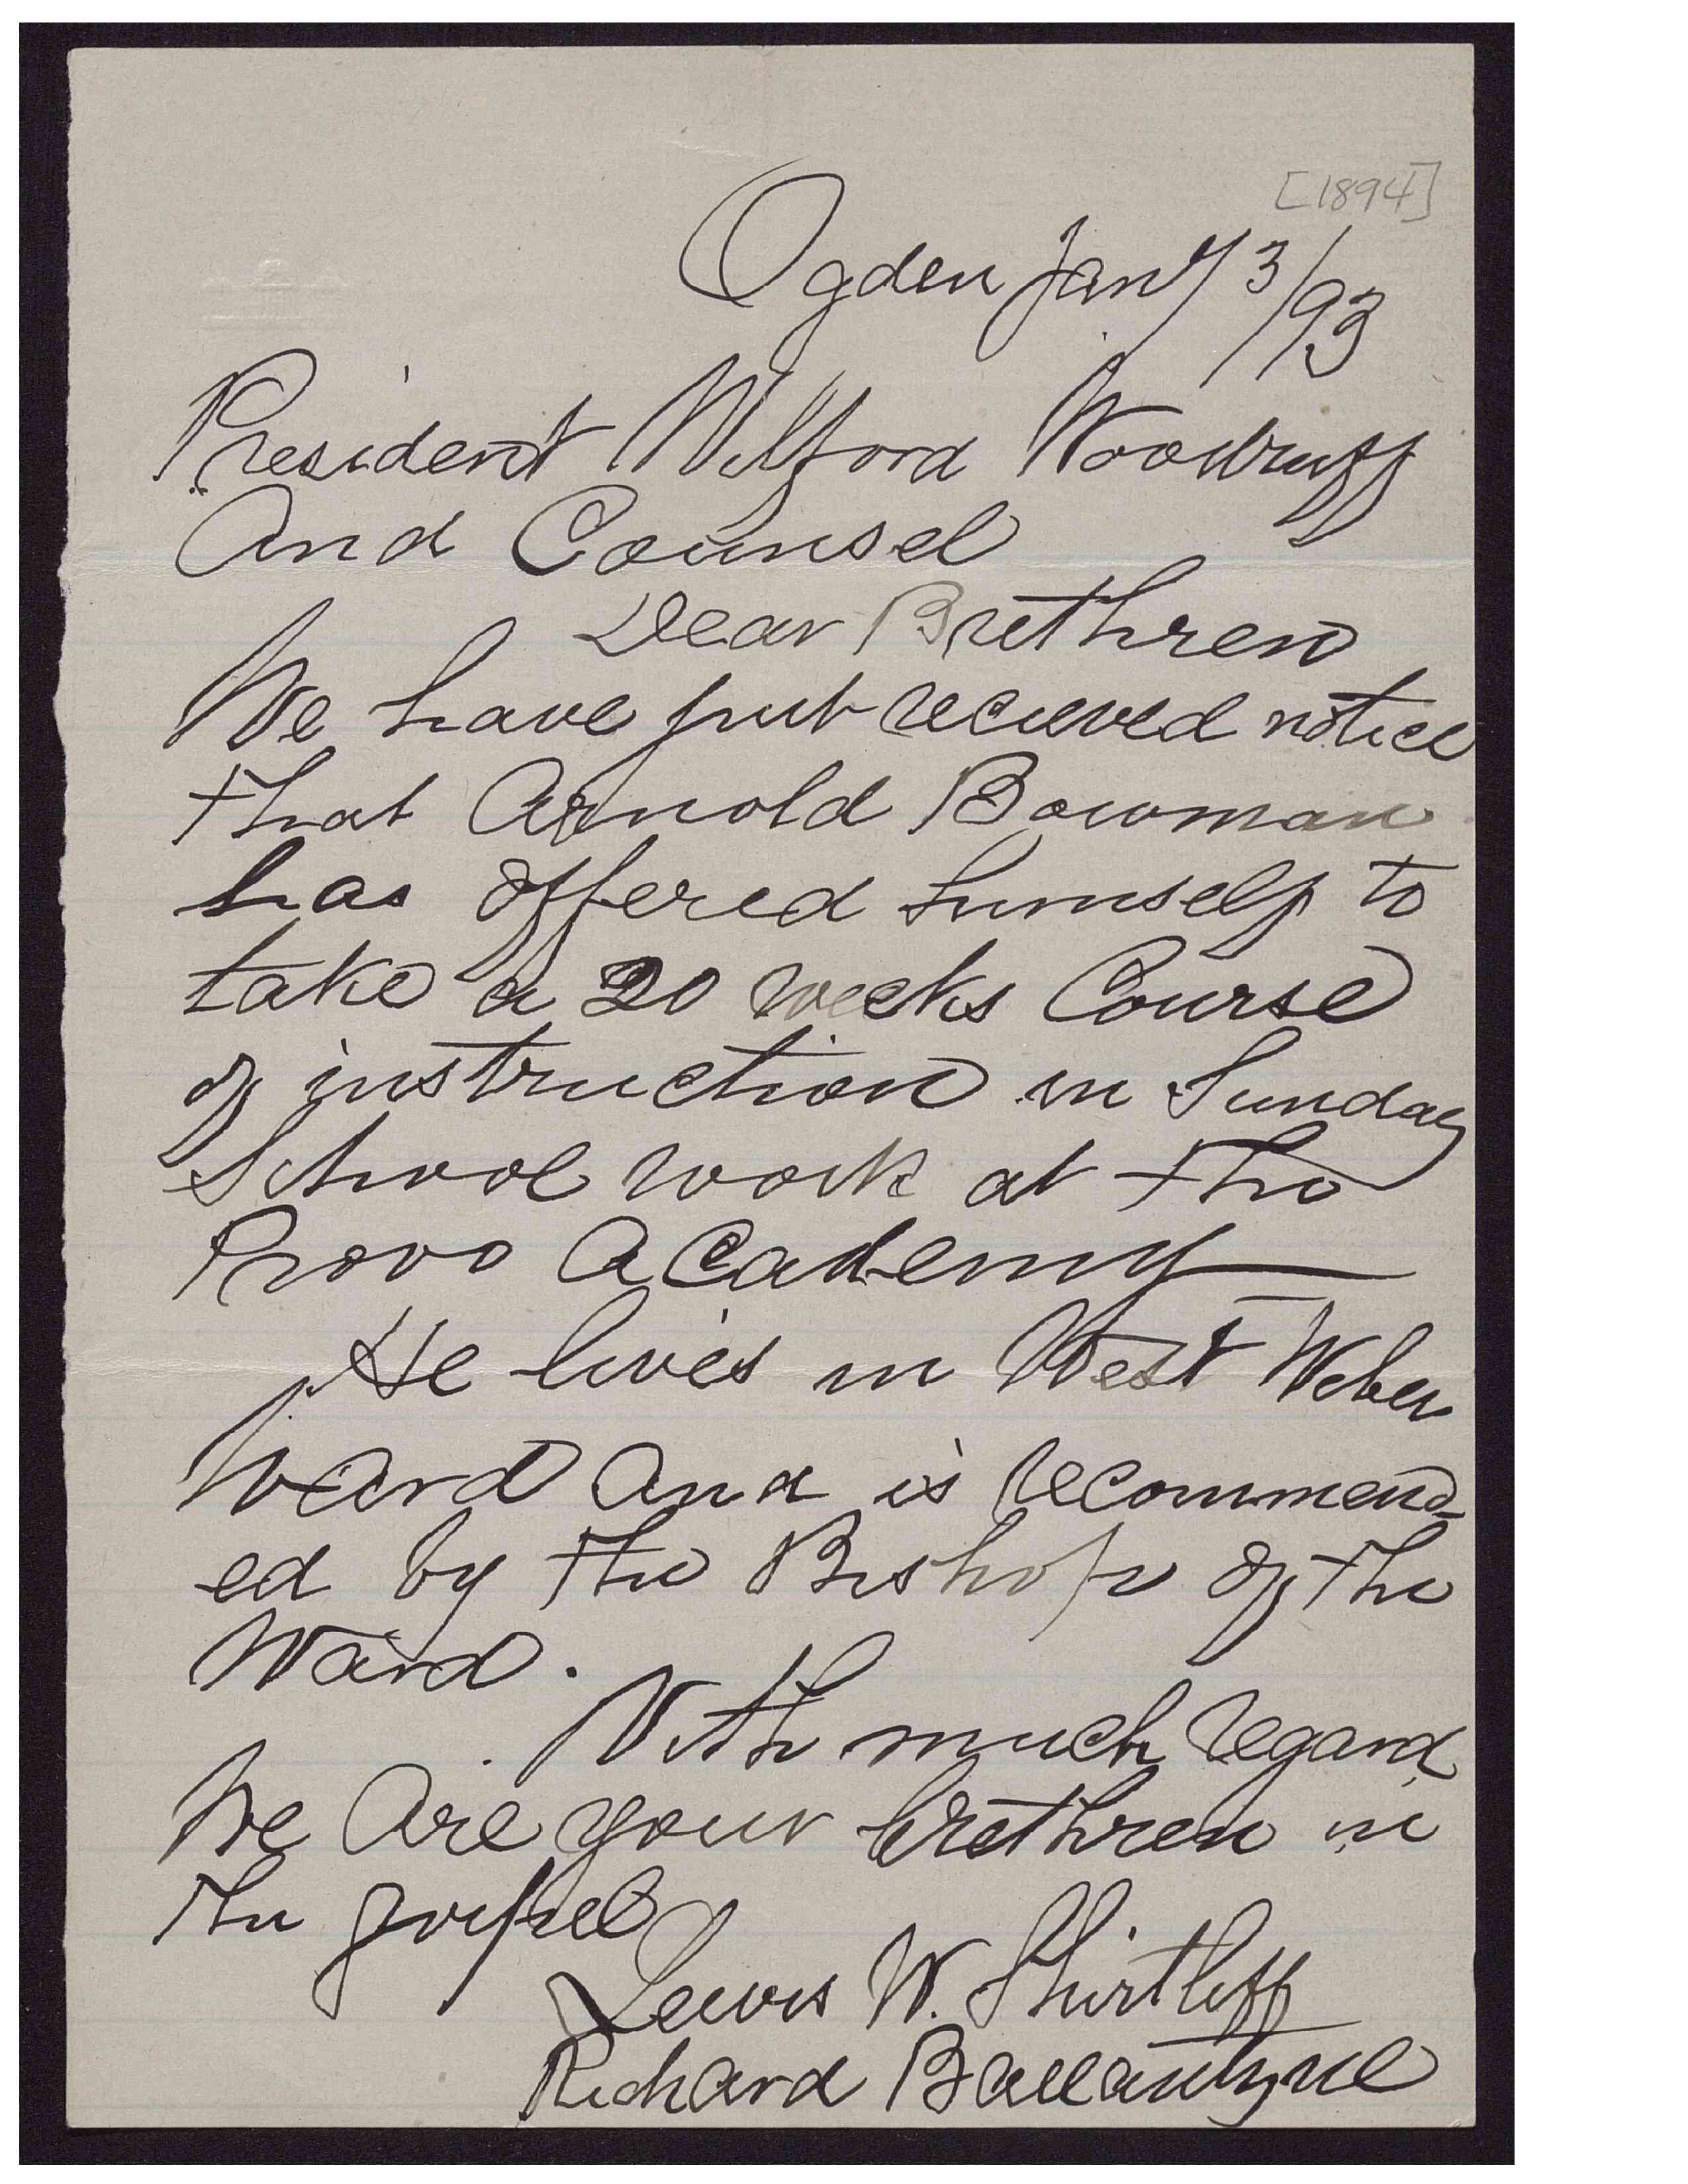 [1894]
Ogden Jany 3/93
President Wilford Woodruff
And Counsel
Dear Brethren
We have just recieved notice
that Arnold Bowman
has offered himself to
take a 20 weeks Course
of instruction in Sunday
School work at the
Provo Academy
He lives in West Weber
Ward and is recommend-
ed by the Bishop of the
Ward.
With much regard
We are your brethren in
the gospel
Lewis W. Shurtliff
Richard Ballantyne